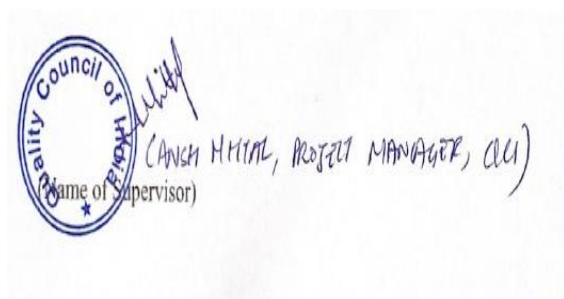 Quality Council of India
(ANSH MITTAL, PROJECT MANAGER, QCI)
(Name of Supervisor)